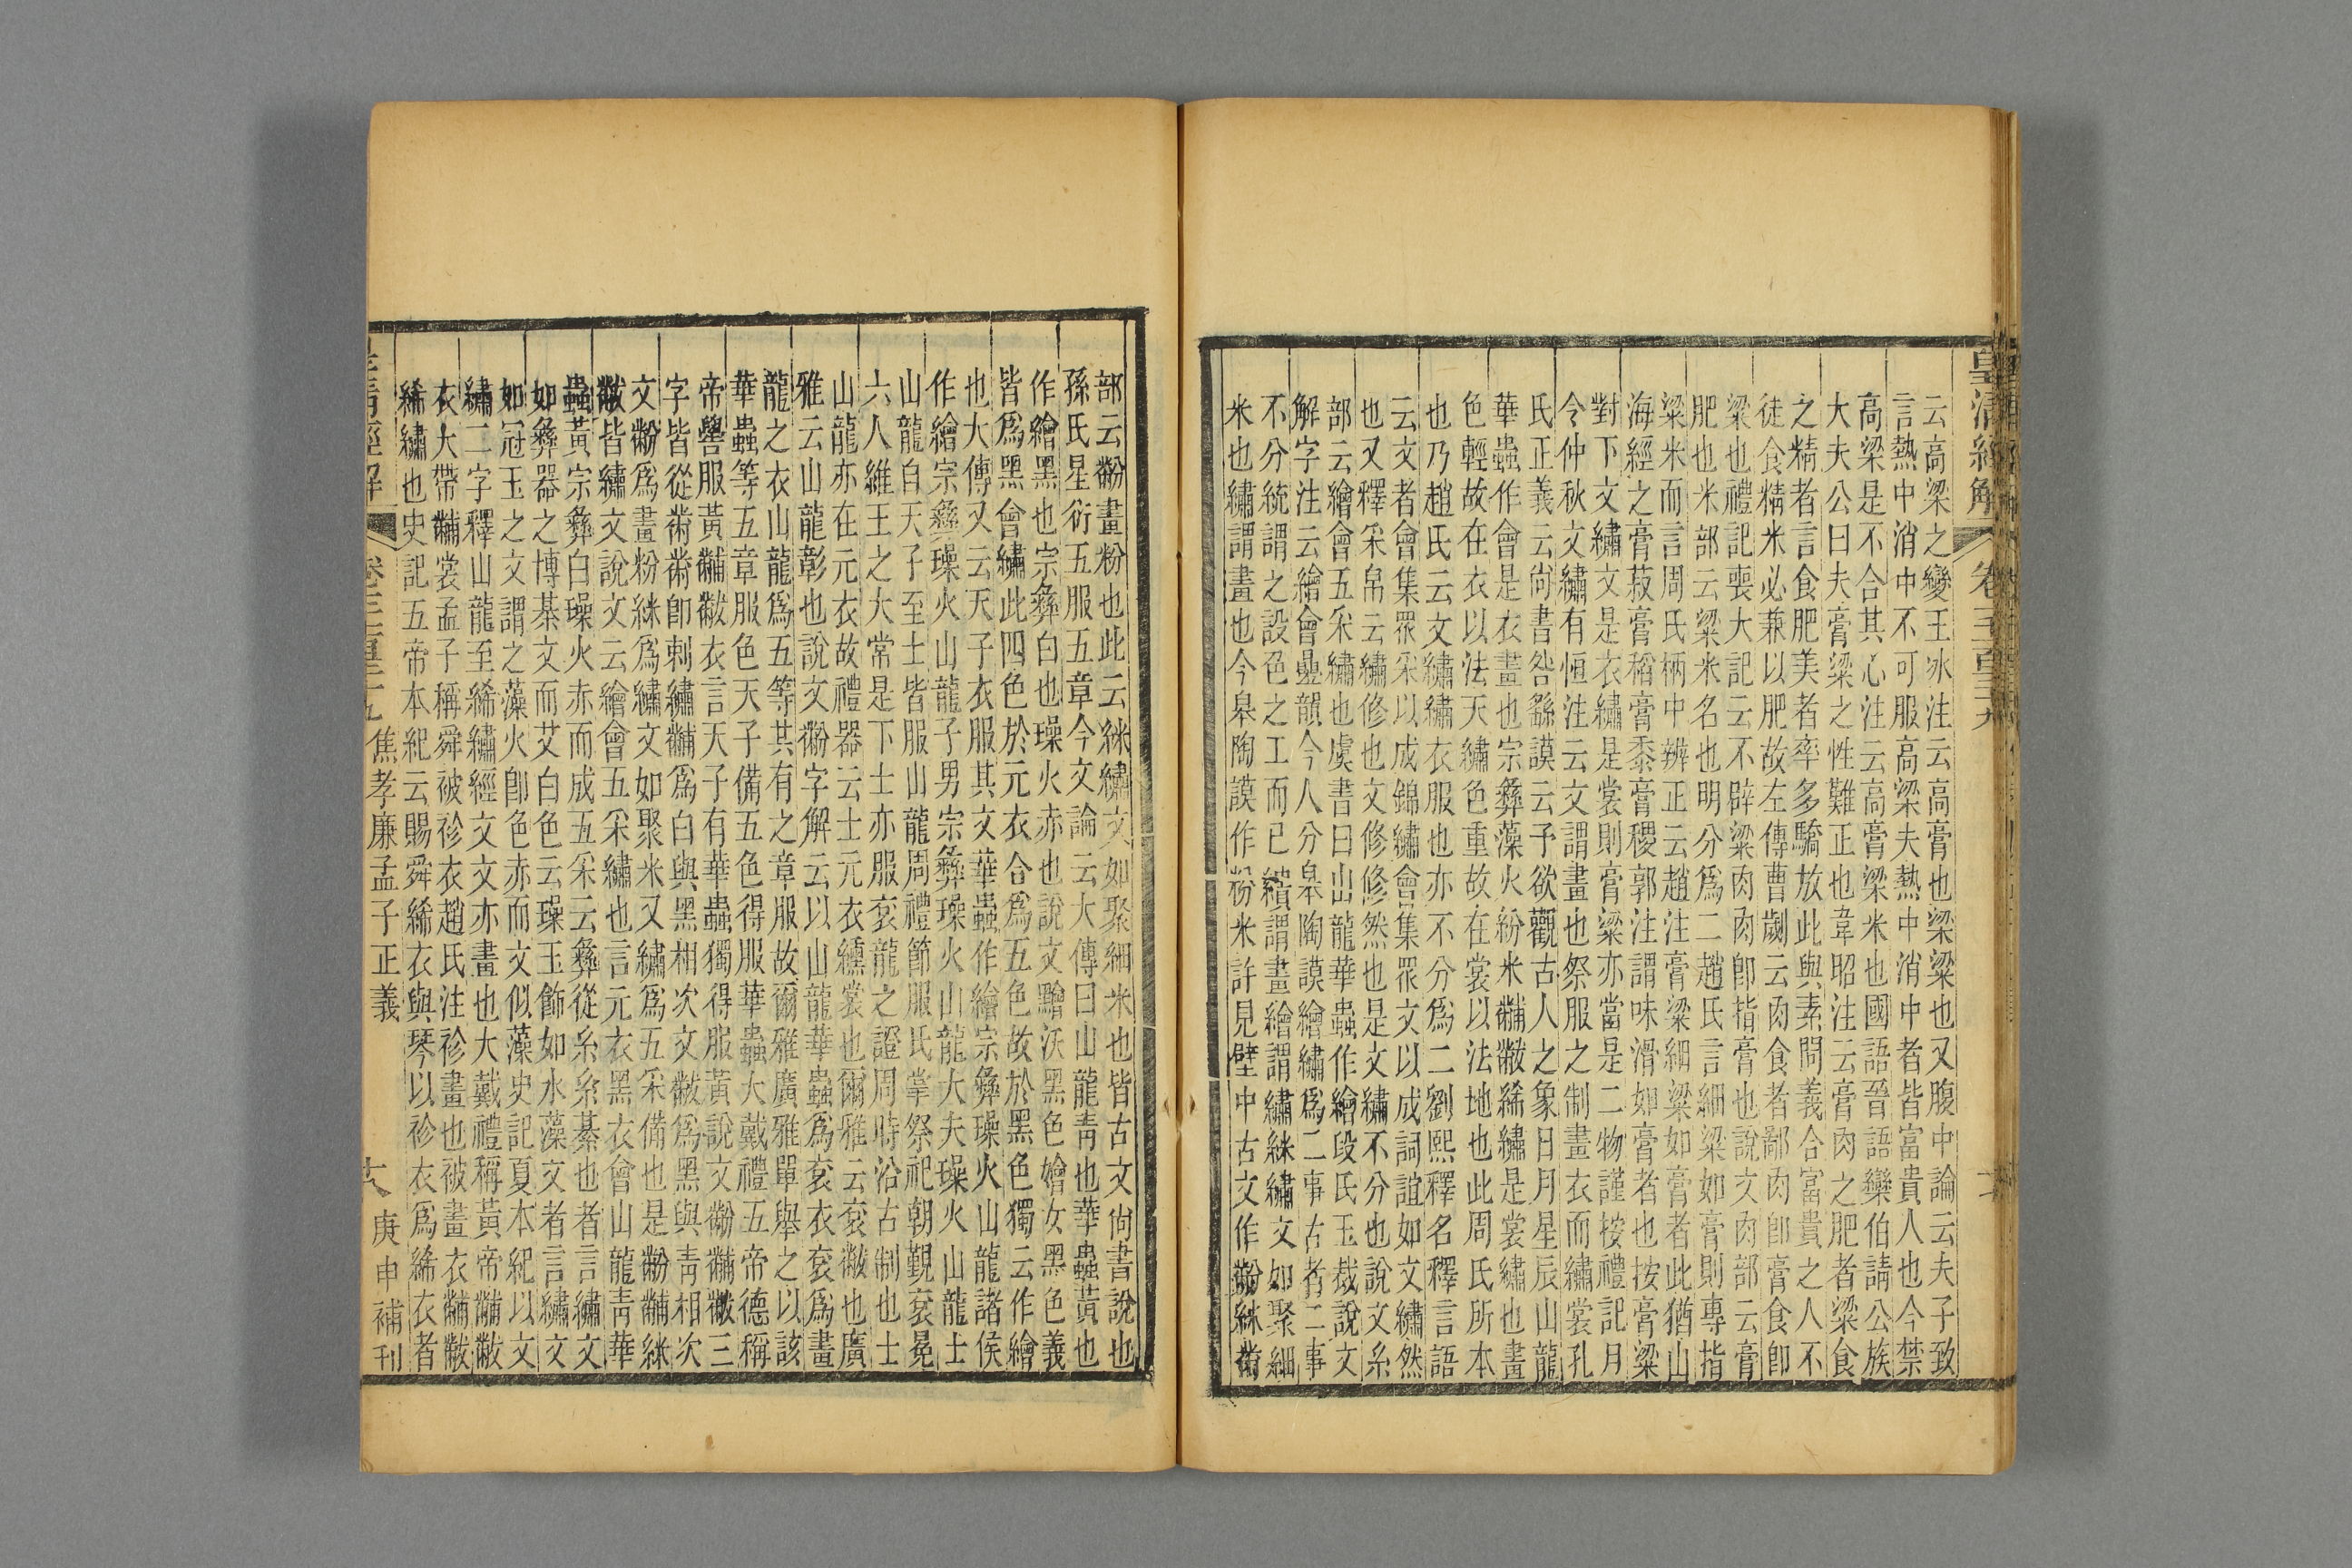 皇清經解
云高梁之變王冰注云高膏也梁粱也又腹中論云夫子致
言熱中消中不可服高梁夫熱中消中者皆富貴人也今禁
高梁是不合其心注云高膏梁米也國語晉語欒伯請公族
大夫公曰夫膏粱之性難正也韋昭注云膏肉之肥者粱食
之精者言食肥美者率多驕放此與素問義合富貴之人不
徒食精米必兼以肥故左傳曹劌云肉食者鄙肉卽膏食卽
粱也禮記喪大記云不辟粱肉肉卽指膏也說文肉部云膏
肥也米部云粱米名也明分爲二趙氏言細粱如膏則專指
粱米而言周氏柄中辨正云趙注膏粱細粱如膏者此猶山
海經之膏菽膏稻膏黍膏稷郭注謂味滑如膏者也按膏粱
對下文繡文是衣繡是裳則膏粱亦當是二物謹按禮記月
令仲秋文繡有恒注云文謂畫也祭服之制畫衣而繡裳孔
氏正義云尙書咎繇謨云予欲觀古人之象日月星辰山龍
華蟲作會是衣畫也宗彝藻火紛米黼黻絺繡是裳繡也畫
色輕故在衣以法天繡色重故在裳以法地也此周氏所本
也乃趙氏云文繡繡衣服也亦不分爲二劉熙釋名釋言語
云文者會集眾采以成錦繡會集眾文以成詞誼如文繡然
也又釋采帛云繡修也文修修然也是文繡不分也說文糸
部云繪會五采繡也虞書曰山龍華蟲作繪段氏玉裁說文
解字注云繪會疊韻今人分皋陶謨繪繡爲二事古者二事
不分統謂之設色之工而已繢謂畫繪謂繡絑繡文如聚細
米也繡謂畫也今皋陶謨作粉米許見壁中古文作黺䋛黹
部云黺畫粉也此云䋛繡文如聚細米也皆古文尙書說也
孫氏星衍五服五章今文論云大傳曰山龍靑也華蟲黃也
作繪黑也宗彝白也璪火赤也說文黵沃黑色嬒女黑色義
皆爲黑會繡此四色於元衣合爲五色故於黑色獨云作繪
也大傳又云天子衣服其文華蟲作繪宗彝璪火山龍諸侯
作繪宗彝璪火山龍子男宗彝璪火山龍大夫璪火山龍士
山龍白天子至士皆服山龍周禮節服氏掌祭祀朝覲袞冕
六人維王之大常是下士亦服袞龍之證周時沿古制也士
山龍亦在元衣故禮器云士元衣纁裳也爾雅云袞黻也廣
雅云山龍彰也說文黺字解云以山龍華蟲爲袞衣袞爲畫
龍之衣山龍爲五等其有之章服故爾雅廣雅單舉之以該
華蟲等五章服色天子備五色得服華蟲大戴禮五帝德稱
帝嚳服黃黼黻衣言天子有華蟲獨得服黃說文黺黼黻三
字皆從黹黹卽刺繡黼爲白與黑相次文黻爲黑與靑相次
文黺爲畫粉䋛爲繡文如聚米又繡爲五采備也是黺黼䋛
黻皆繡文說文云繪會五采繡也言元衣黑衣會山龍靑華
蟲黃宗彝白璪火赤而成五采云彝從糸糸綦也者言繡文
如彝器之博綦文而艾白色云璪玉飾如水藻文者言繡文
如冠玉之文謂之藻火卽色赤而文似藻史記夏本紀以文
繡二字釋山龍至絺繡經文文亦畫也大戴禮稱黃帝黼黻
衣大帶黼裳孟子稱舜被袗衣趙氏注袗畫也被畫衣黼黻
絺繡也史記五帝本紀云賜舜絺衣與琴以袗衣爲絺衣者
焦孝廉孟子正義
庚申補刊